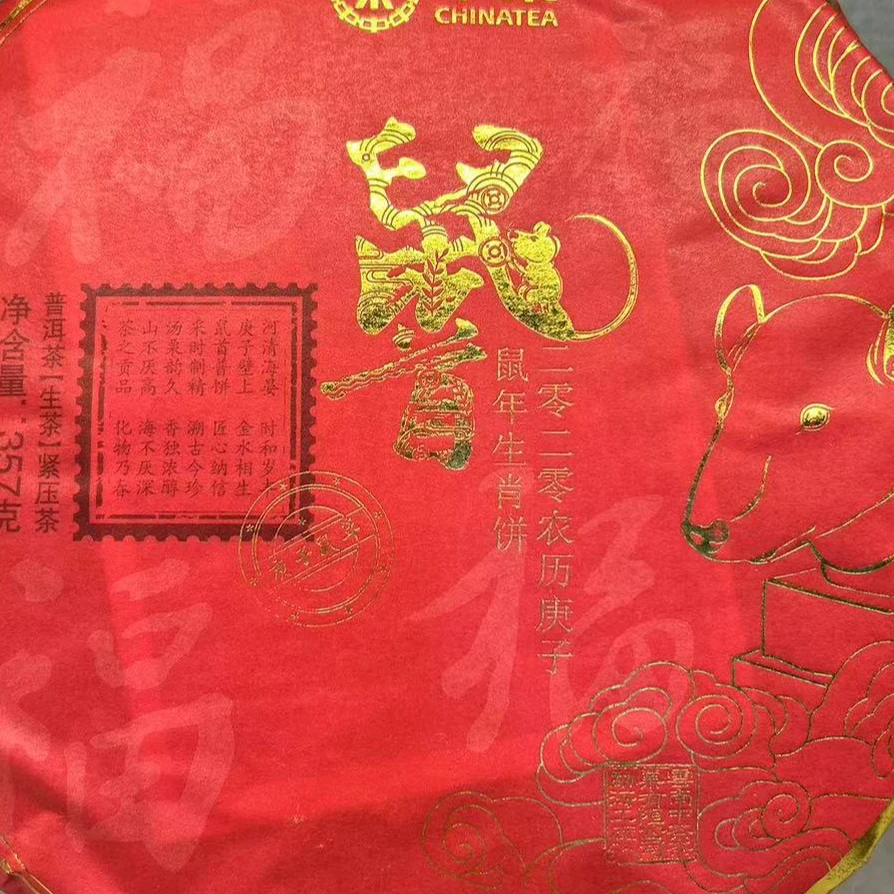 CHINATEA
鼠首
二零二零农历庚子
鼠年生肖饼
河清海晏 时和岁丰
庚子壁上 金水相生
鼠首普饼 匠心纳信
采时制精 溯古今珍
汤栗韵久 香独浓醇
山不厌高 海不厌深
茶之贡品 化物乃春
普洱茶【生茶】紧压茶
净含量:357克